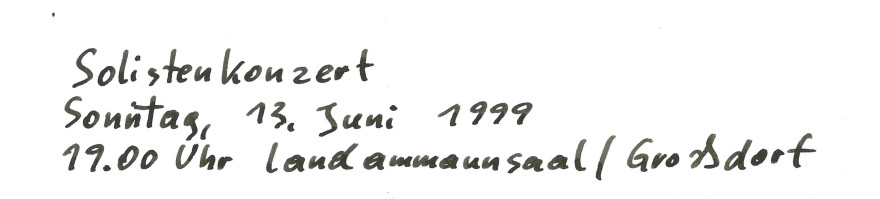 Solistenkonzert
Sonntag, 13. Juni 1999
19.00 Uhr Landammannsaal/Großdorf